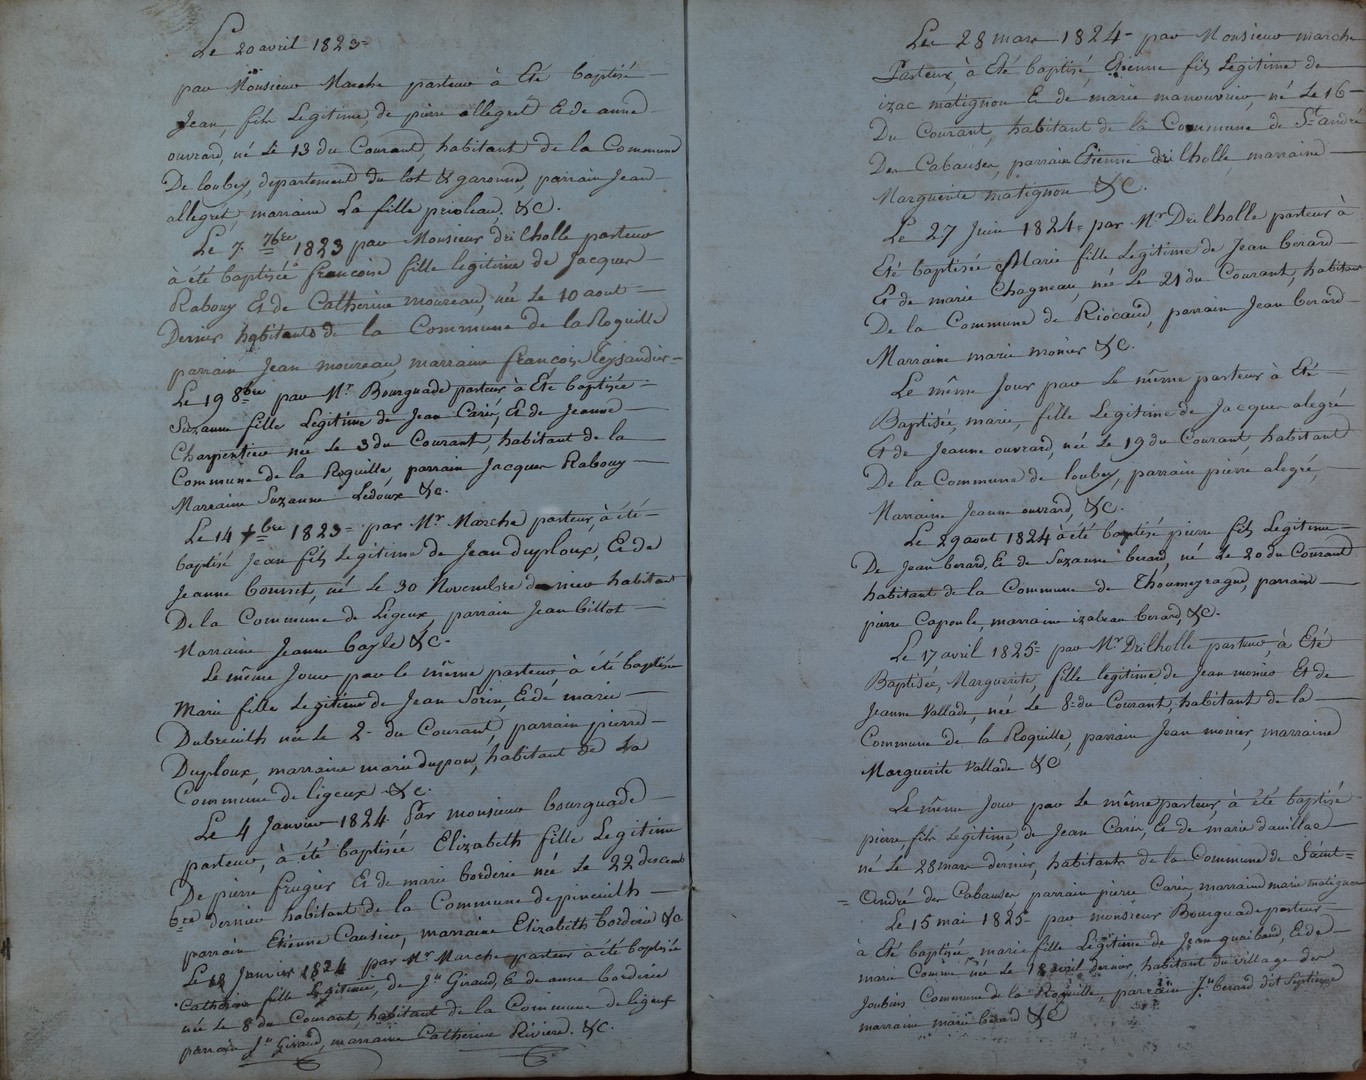 Le 20 avril 1823=
par Monsieur Marche pasteur à Eté baptisé
Jean, fils Legitime, de pierre allegret & de anne
ouvrard, né Le 13 du Courant, habitant de la Commune
De loubes, departement du lot & garonne, parrain Jean
allegret, marraine La fille prioleau, &c.
Le 7. 7bre 1823 par Monsieur Drilholle pasteur
à été baptisée françoise fille legitime de Jacques
Rabouy & de Catherine moureau, née Le 10 aout
Dernier habitants de la Commune de la Roquille
parrain Jean moureau, marraine françoise Teyssandier
Le 19 8bre par Mr. Bourguade pasteur à Eté baptisée
Suzanne fille Legitime de Jean Carié, & de Jeanne
Charpentier née Le 3 du Courant, habitant de la
Commune de la Roquille parrain Jacques Rabouy
Marraine Suzanne Ledoux &c.
Le 14 Xbre 1823= par Mr Marche pasteur, à été
baptisé Jean fils Legitime de Jean Duploux, & de
Jeanne né Le 30 Novembre dernier habitant
De la Commune de Ligeux, parrain Jean Gillot
Marraine Jeanne Bayle &c.
Le même Jour par le même pasteur à été baptisée
Marie fille Legitime de Jean Sorin, & de marie
Dubreuilh née Le 2. du Courant, parrain pierre
Duploux, marraine marie dupon, habitant de La
Commune de ligeux &c.
Le 4 Janvier 1824. Par monsieur bourguade
pasteur, à été baptisée Elizabeth fille Legitime
De pierre frugier & de marie borderie née Le 22 descem
bre dernier habitant de la Commune de pineuilh
parrain Etienne Causier, marraine Elizabeth borderie &c
Le 18 Janvier 1824 par Mr Marche pasteur à été baptisée
Catherine fille Legitime, de Jn Giraud, & de anne borderie
née Le 8 du Courant, habitant de la Commune de ligeux
parrain Jn Giraud, marraine Catherine Riviere. &c.
Le 28 mars 1824 - par Monsieur marche
Pasteur, à Eté baptisé, Etienne fils Legitime de
izac matignon & de marie manouvrier, né Le 16
Du Courant, habitant de la Commune de St andré
Des Cabauses, parrain Etienne drilholle marraine
Marguerite matignon &c.
Le 27 Juin 1824= par Mr Drilholle pasteur à
Eté baptisée Marie fille legitime de Jean berard
Et de marie Chagneau, née Le 21 du Courant, habitant
De la Commune de Riocaud, parrain Jean berard
Marraine marie monier &c.
Le même Jour par Le même pasteur à Eté
Baptisée, marie, fille Legitime de Jacques alegré
Et de Jeanne ouvrard, née Le 19 du Courant, habitant
De la Commune de loubes, parrain pierre alegré,
Marraine Jeanne ouvrard, &c.
Le 29 aout 1824 à été baptisé pierre fils Legitime
De Jean berard, & de Suzanne beraud, né Le 20 du Courant
habitant de la Commune de Thoumeyragues, parrain
pierre Capoule, marraine izabeau berard, &c.
Le 17 avril 1825= par Mr. Drilholle pasteur, à Eté
Baptisée, Marguerite, fille legitime, de Jean monier Et de
Jeanne Vallade, née Le 8 du Courant, habitant de la
Commune de la Roquille, parrain Jean monier, marraine
Marguerite Vallade &c
Le même Jour par Le même pasteur, à été baptisé
pierre, fils Legitime, de Jean Carier, & de marie
né Le 28 mars dernier, habitants de la Commune de Saint=
= André des Cabauses, parrain pierre Carier, marraine marie matignon
Le 15 mai 1825= par monsieur Bourguade pasteur
à Eté baptisée marie fille Legitime de Jean & de
marie Comme née Le 18 avril dernier, habitant du village des
Joubins Commune de la Roquille, parrain Jn berard dit Septime
marraine marie berard &c